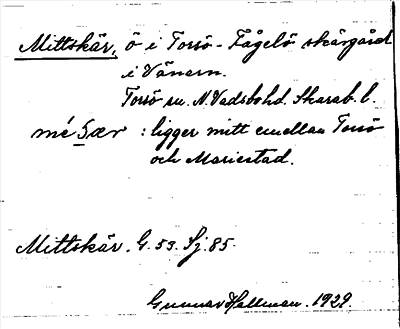 Mittskär, ö i Torsö-Fågelö skärgård
i Vänern.
Torsö sn. N. Vadsbo hd. Skarab. l.
: ligger mitt emellan Torsö
och Mariestad.
Mittskär. G. 53. Sj. 85.
Gunnar Hallman. 1929.